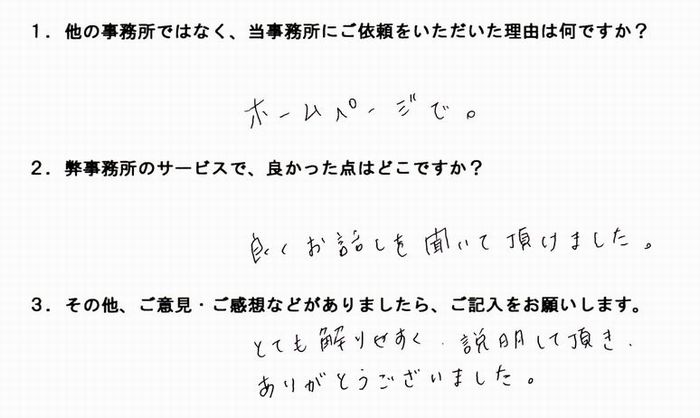 1．他の事務所ではなく、当事務所にご依頼をいただいた理由は何ですか？
ホームページで。
2．弊事務所のサービスで、良かった点はどこですか？
良くお話しを聞いて頂けました。
3．その他、ご意見・ご感想などがありましたら、ご記入をお願いします。
とても解りせすく、説明して頂き、
ありがとうございました。